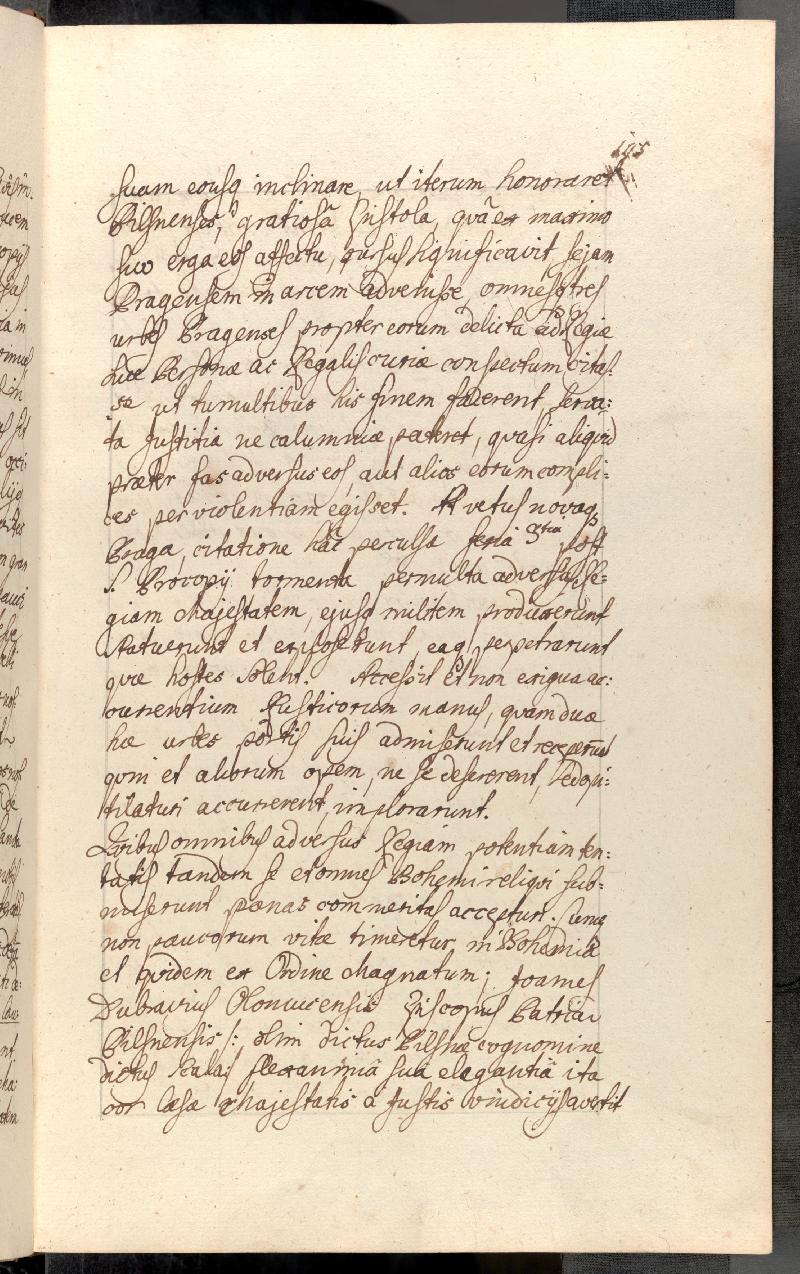 195
suam eousq inclinare, ut iterum honoraret
Pilsnenses, gratiosâ Epistola, quâ ex maximo
suo erga eos affectu, rursus significavit, se jam
Pragensem in arcem advenisse, omnesq tres
urbes Pragenses propter eorum delicta ad Regiæ
suæ Personæ ac Regalis curiæ conspectum citas:
se ut tumultibus his finem facerent, serva:
ta Justitia ne calumniæ pateret, quasi aliquid
præter fas adversus eos, aut alios eorum compli:
ces per violentiam egisset. At vetus novaq
Praga, citatione hâc perculsa feriâ 3tia post
S. Procopij tormenta permulta adversus Re:
giam Majestatem, ejusq militem produxerunt
statuerunt et exposuerunt, eaq perpetrarunt
quæ hostes solent. Accessit et non exigua ac:
currentium Rusticorum manus, quam duæ
hæ urbes portis suis admiserunt et receperunt
quin et aliorum opem, ne se desererent, sed opi:
tulaturi accurrerent, implorarunt.
Quibus omnibus adversus Regiam potentiam ten:
tatis tandem se et omnes Bohemi reliqui sub:
miserunt pœnas commeritas accepturi. Cumq
non paucorum vitæ timeretur in Bohemiâ
et quidem ex Ordine Magnatum; Joannes
Dubravius Olomucensis Episcopus Patriâ
Pilsnensis /: olim dictus Pilsnæ cognomine
dictus Skala:/ flexanimâ suâ elegantiâ ita
cor læsæ Majestatis a Justis vindicijs avertit